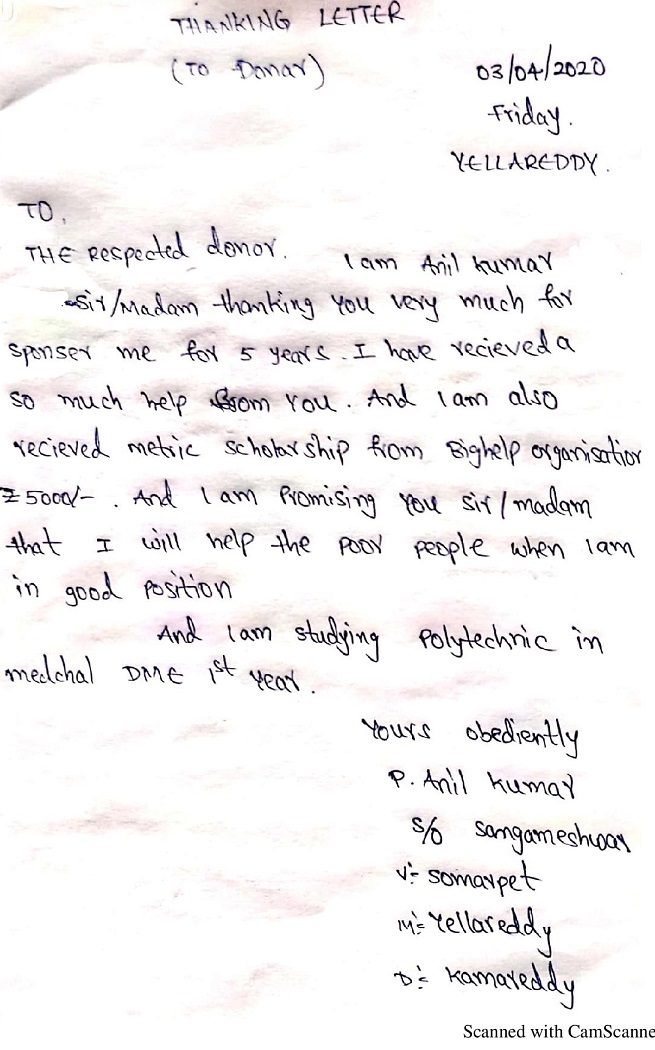 THANKING LETTER
(TO Donar)
03/04/2020
Friday.
YELLAREDDY.
TO,
THE Respected donor. I am Anil kumar
Sir/Madam thanking you very much for
sponser me for 5 years. I have recieved a
so much help from you. And I am also
recieved metric scholarship from Bighelp organisation
₹5000/-. And I am Promising you sir/madam
that I will help the poor people when I am
in good position
And I am studying polytechnic in
medchal DME 1st year.
Yours obediently
P. Anil kumar
S/o Sangameshwar
V:- Somarpet
M:- Yellareddy
D:- kamareddy
Scanned with CamScanne